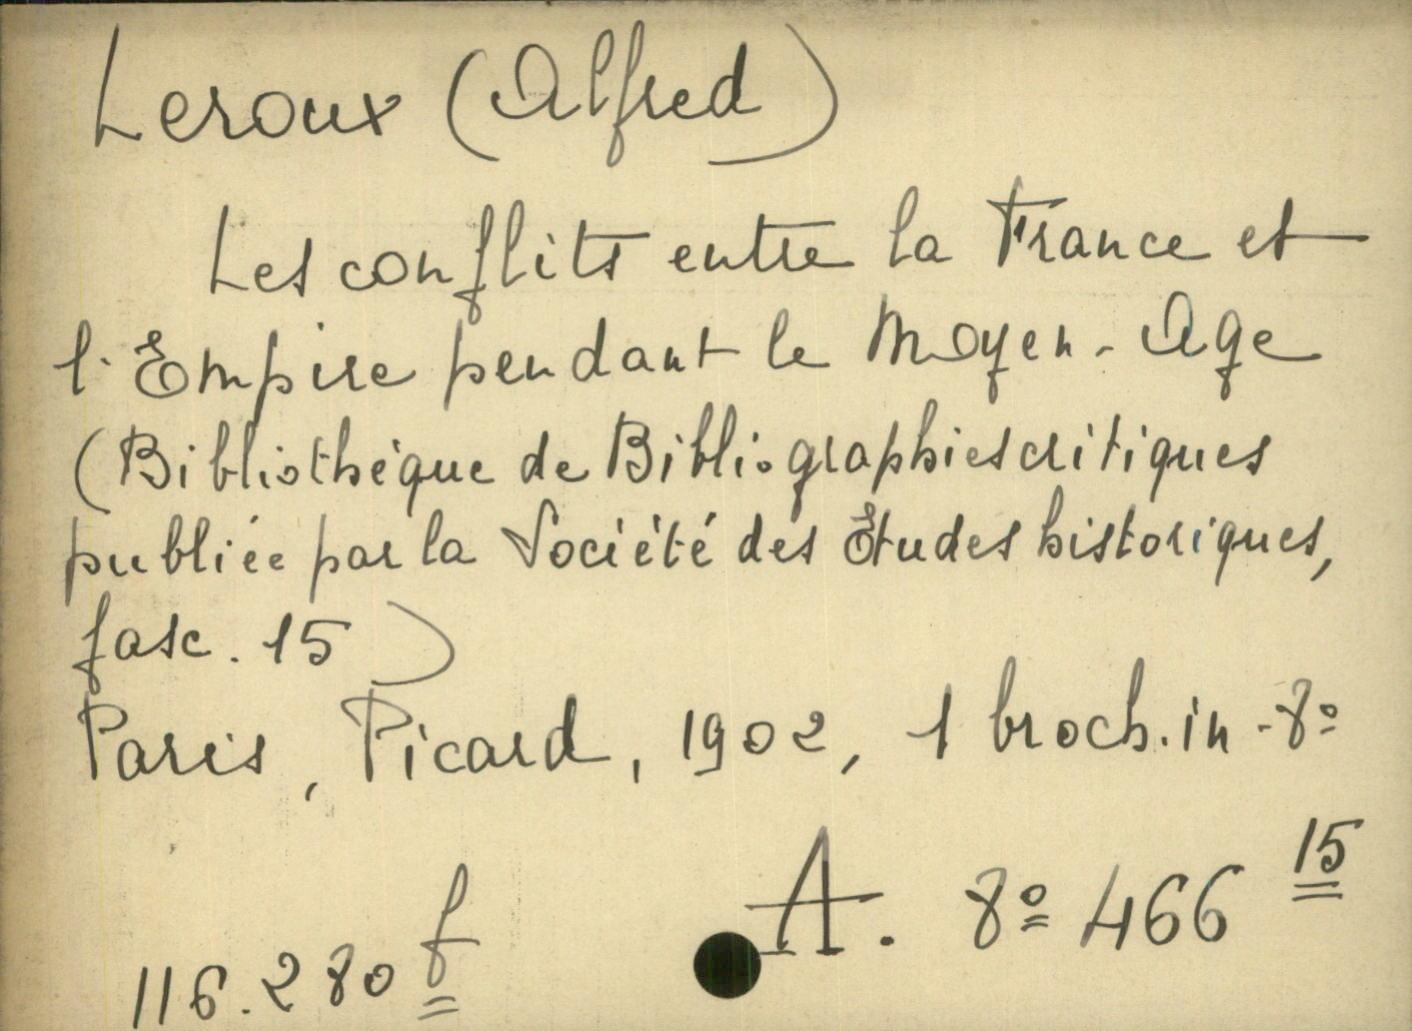 Leroux (Alfred)
Les conflits entre la France et
l'Empire pendant le Moyen-Age
(Bibliothèque de Bibliographies critiques
publiée par la Société des Études historiques,
fasc. 15)
Paris, Picard, 1902, 1 broch. in-8º
A. 8º 466 15
116.280 f